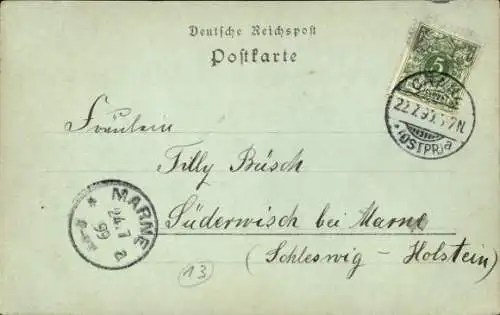 Deutsche Reichspost
Postkarte
5
CRANZ
22.7.99.
(OSTPR) a
Fräulein
Tilly Büsch
Süderwisch bei Marne
(Schleswig - Holstein)
MARNE
24.7
99
a
13